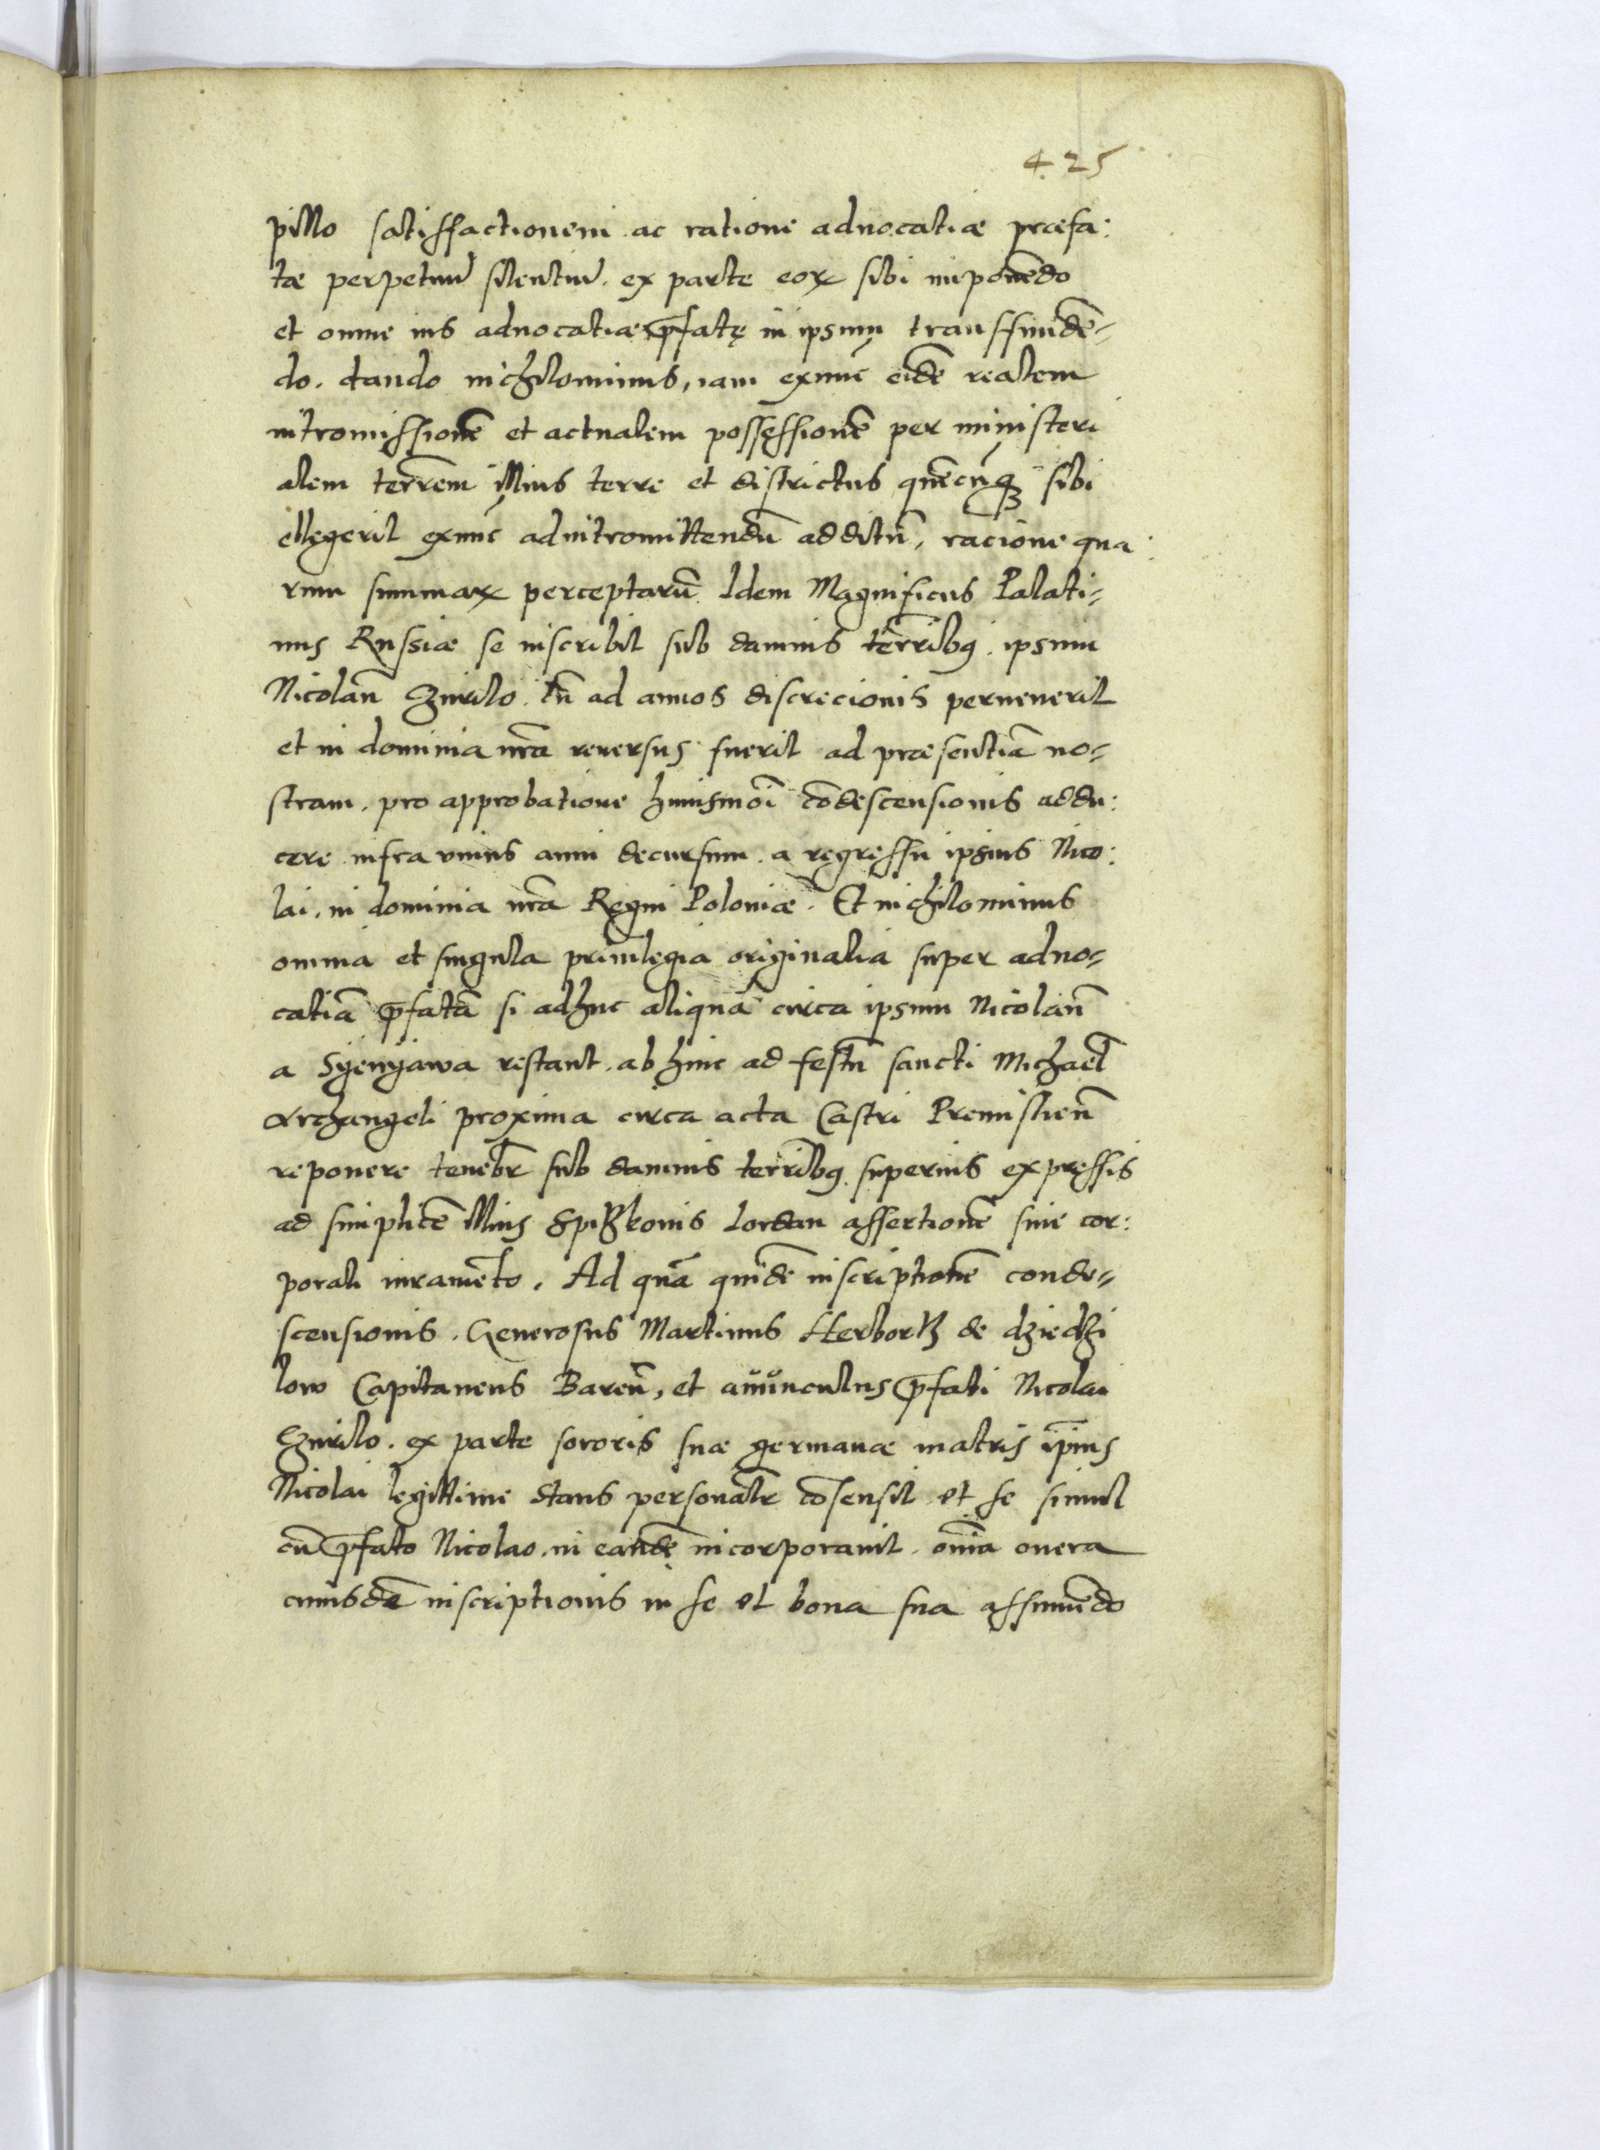 425
pillo satisffactionem ac ratione aduocatiæ præfa:
tæ perpetuũ silentiũ. ex parte eoꝝ sibi imponẽdo
et omne ius aduocatiæ p̃fatę in ipsum transfundẽ=
do. dando nichilominus, iam exnũc eidẽ realem
intromissionẽ et actualem possessionẽ per ministeri
alem terrẽm illius terre et districtus quẽcũqꝫ sibi
ellegerit exnũc ad intromittendũ additũ, racione qua:
rum summaꝝ perceptarũ. Idem Magnificus Palati=
nus Russiæ se inscribit sub damnis terrĩbꝫ. ipsum
Nicolaũ Czurilo. cũ ad annos discrecionis peruenerit
et in dominia nr̃a reuersus fuerit ad præsentiã no=
stram. pro approbatione huiusmoĩ cõdescensionis addu:
cere infra vnius anni decursum. a regressu ipsius Nico:
lai. in dominia nr̃a Regni Poloniæ. Et nichilominus
omnia et singula priuilegia originalia super aduo=
catiã p̃fatã si adhuc aliqua circa ipsum Nicolaũ
a Syenyawa restant. ab hinc ad festũ sancti Michael̃
Archangeli proxima circa acta Castri Premislieñ
reponere teneb̃r sub damnis terrĩbꝫ superius expressis
ad simplicẽ illius Spiẞkonis Iordan assertionẽ siue cor:
porali iuramẽto. Ad quã quidẽ inscriptionẽ conde=
scensionis. Generosus Martinus Herborth de dziedzi
low Capitaneus Bareñ, et auunculus p̃fati Nicolai
Czurilo. ex parte sororis suæ germanæ matris ip̃ius
Nicolai legittime stans personalr̃ cõsensit et se simul
cũ p̃fato Nicolao. in eandẽ incorporauit. om̃ia onera
eiusdẽ inscriptionis in se et bona sua assumẽdo